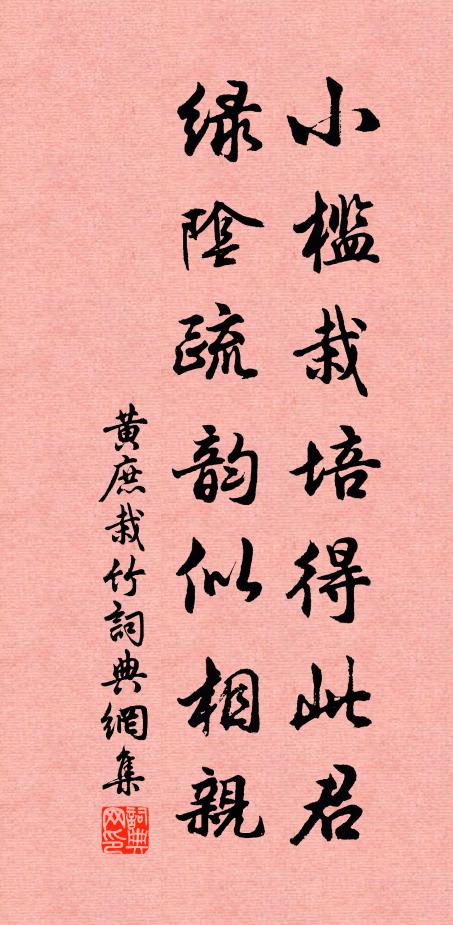 小檻栽培得此君
緑陰疏韵似相親
黃庶栽竹詞典網集
詞典网印